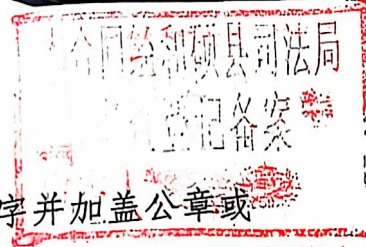 合同经和硕县司法局
登记备案
字并加盖公章或